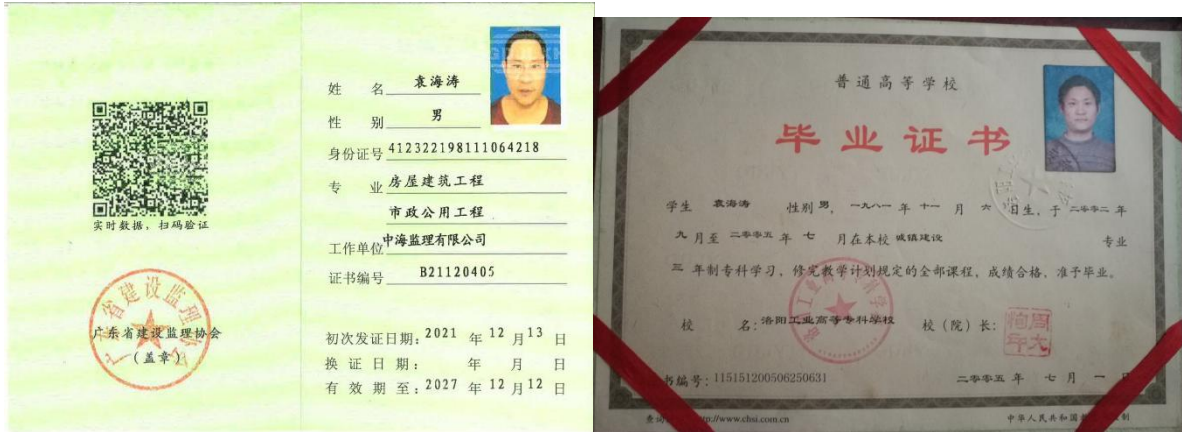 姓 名 袁海涛
性 别 男
身份证号 412322198111064218
专 业 房屋建筑工程
市政公用工程
工作单位 中海监理有限公司
证书编号 B21120405
初次发证日期:2021 年 12 月 13 日
换 证 日 期: 年 月 日
有 效 期 至:2027 年 12 月 12 日
实时数据,扫码验证
广东省建设监理协会
(盖章)
普通高等学校
毕业证书
学生 袁海涛 性别 男, 一九八一 年 十一 月 六 日生, 于 二零零二 年
九 月至 二零零五 年 七 月在本校 城镇建设 专业
三 年制专科学习, 修完教学计划规定的全部课程, 成绩合格, 准予毕业。
校 名: 洛阳工业高等专科学校 校(院)长:
书编号: 115151200506250631 二零零五 年 七 月 一 日
查 http://www.chsi.com.cn 中华人民共和国 制